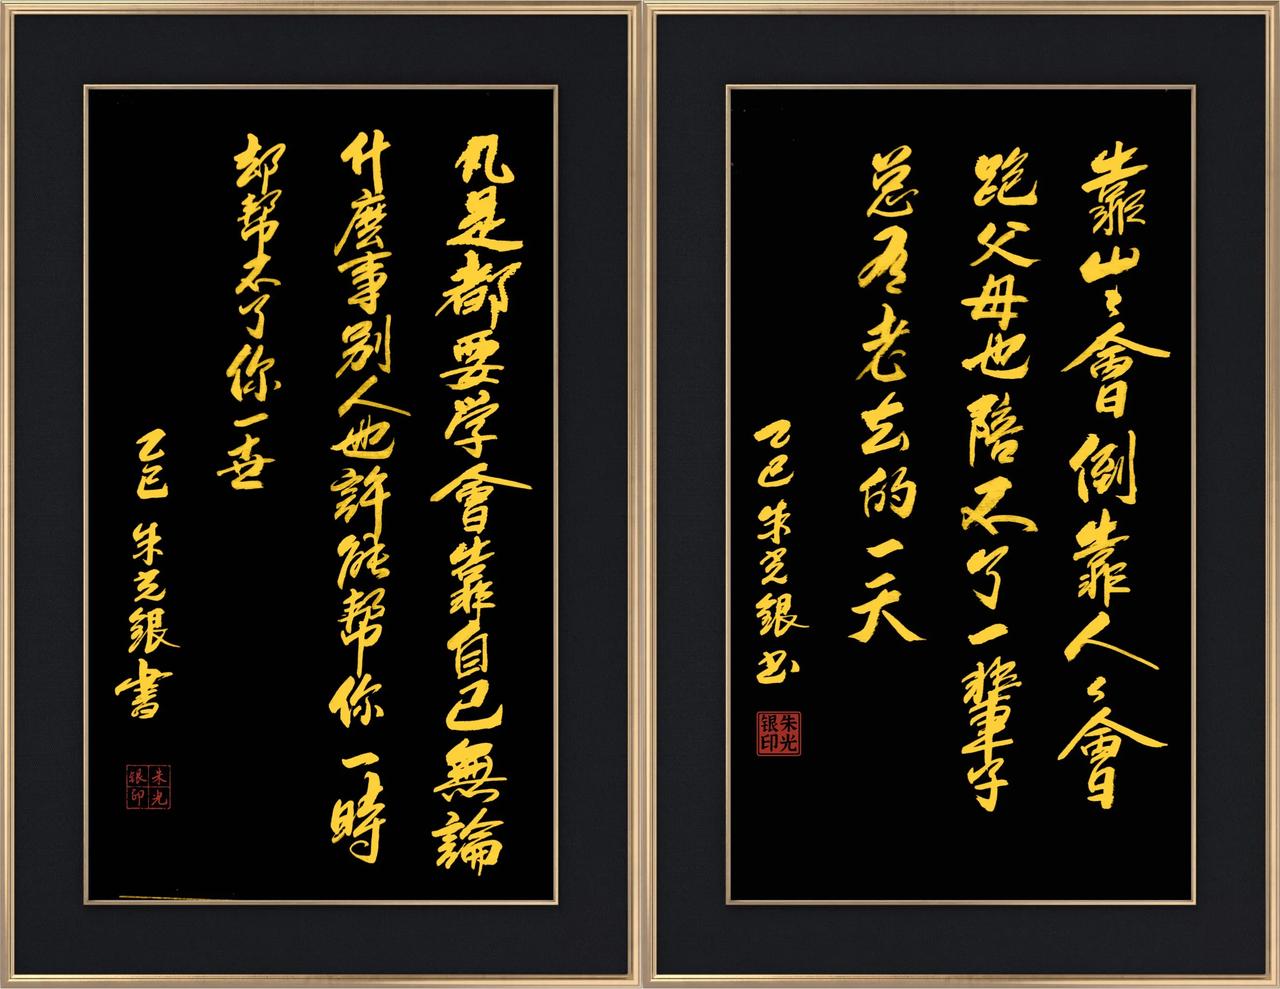 靠山々會倒靠人々會
跑父母也陪不了一輩子
总有老去的一天
乙巳 朱光銀书
朱光银印
凡是都要学會靠自己無論
什麼事别人也許能帮你一時
却帮不了你一世
乙巳 朱光銀書
朱光银印